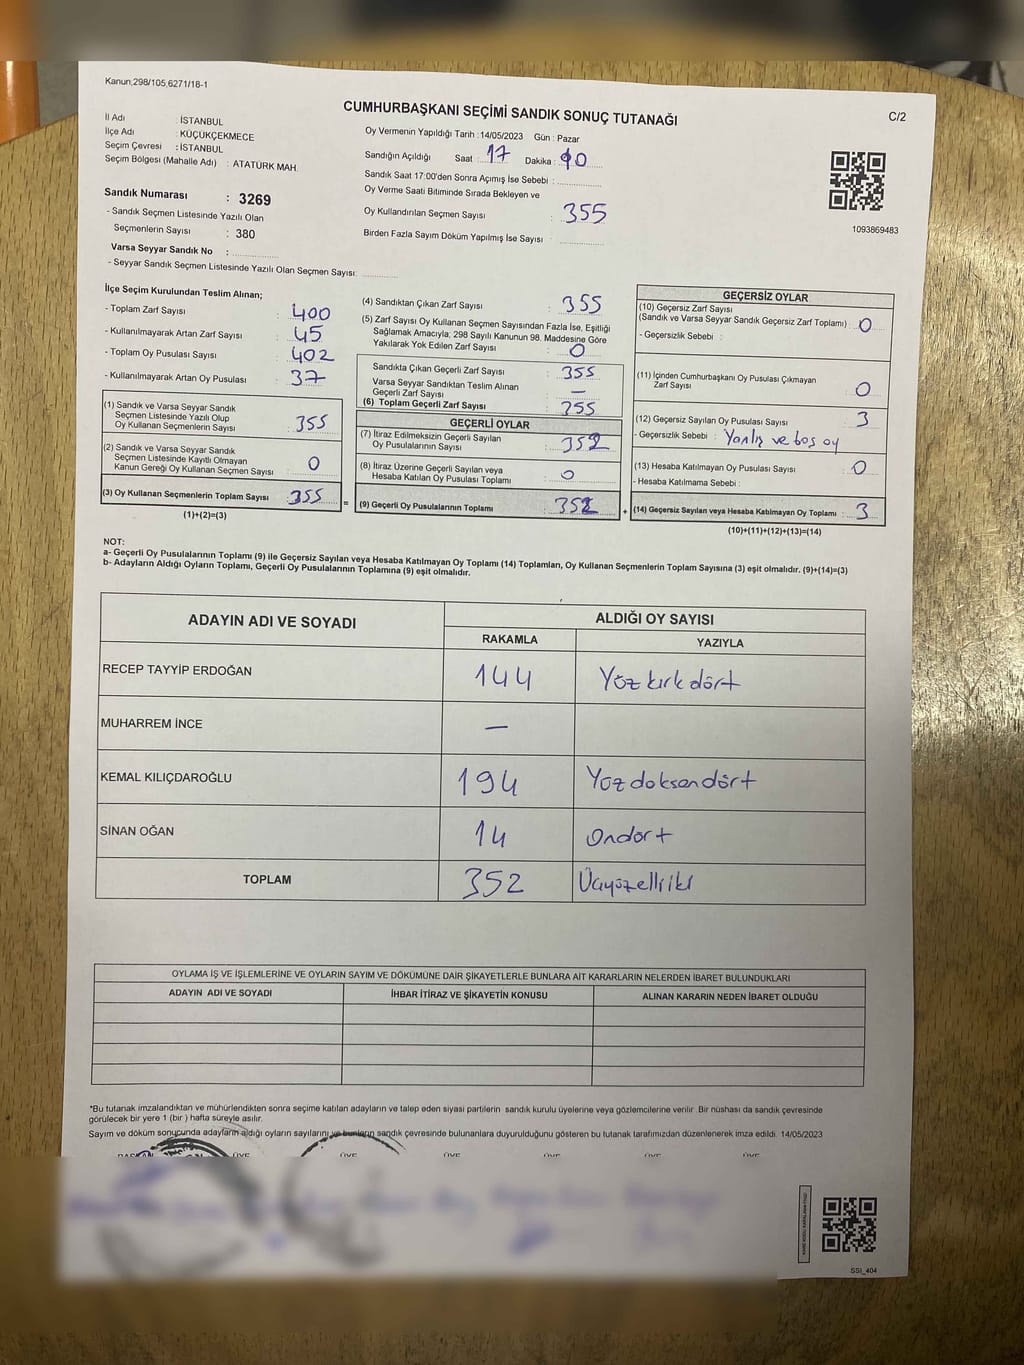 Kanun;298/105,6271/18-1
CUMHURBAŞKANI SEÇİMİ SANDIK SONUÇ TUTANAĞI
C/2
İl Adı : İSTANBUL
İlçe Adı : KÜÇÜKÇEKMECE
Seçim Çevresi : İSTANBUL
Seçim Bölgesi (Mahalle Adı) : ATATÜRK MAH.
Sandık Numarası : 3269
- Sandık Seçmen Listesinde Yazılı Olan
Seçmenlerin Sayısı : 380
Varsa Seyyar Sandık No :
- Seyyar Sandık Seçmen Listesinde Yazılı Olan Seçmen Sayısı:
Oy Vermenin Yapıldığı Tarih :14/05/2023 Gün : Pazar
Sandığın Açıldığı Saat : 17 Dakika : 10
Sandık Saat 17:00'den Sonra Açımış İse Sebebi :
Oy Verme Saati Bitiminde Sırada Bekleyen ve
Oy Kullandırılan Seçmen Sayısı : 355
Birden Fazla Sayım Döküm Yapılmış İse Sayısı :
1093869483
İlçe Seçim Kurulundan Teslim Alınan;
- Toplam Zarf Sayısı : 400
- Kullanılmayarak Artan Zarf Sayısı : 45
- Toplam Oy Pusulası Sayısı : 402
- Kullanılmayarak Artan Oy Pusulası : 37
(1) Sandık ve Varsa Seyyar Sandık
Seçmen Listesinde Yazılı Olup
Oy Kullanan Seçmenlerin Sayısı : 355
(2) Sandık ve Varsa Seyyar Sandık
Seçmen Listesinde Kayıtlı Olmayan
Kanun Gereği Oy Kullanan Seçmen Sayısı : 0
(3) Oy Kullanan Seçmenlerin Toplam Sayısı : 355 =
(1)+(2)=(3)
(4) Sandıktan Çıkan Zarf Sayısı : 355
(5) Zarf Sayısı Oy Kullanan Seçmen Sayısından Fazla İse, Eşitliği
Sağlamak Amacıyla, 298 Sayılı Kanunun 98. Maddesine Göre
Yakılarak Yok Edilen Zarf Sayısı : 0
Sandıkta Çıkan Geçerli Zarf Sayısı : 355
Varsa Seyyar Sandıktan Teslim Alınan
Geçerli Zarf Sayısı : —
(6) Toplam Geçerli Zarf Sayısı : 355
GEÇERLİ OYLAR
(7) İtiraz Edilmeksizin Geçerli Sayılan
Oy Pusulalarının Sayısı : 352
(8) İtiraz Üzerine Geçerli Sayılan veya
Hesaba Katılan Oy Pusulası Toplamı : 0
(9) Geçerli Oy Pusulalarının Toplamı : 352 +
GEÇERSİZ OYLAR
(10) Geçersiz Zarf Sayısı
(Sandık ve Varsa Seyyar Sandık Geçersiz Zarf Toplamı) : 0
- Geçersizlik Sebebi :
(11) İçinden Cumhurbaşkanı Oy Pusulası Çıkmayan
Zarf Sayısı : 0
(12) Geçersiz Sayılan Oy Pusulası Sayısı : 3
- Geçersizlik Sebebi : Yanlış ve boş oy
(13) Hesaba Katılmayan Oy Pusulası Sayısı : 0
- Hesaba Katılmama Sebebi :
(14) Geçersiz Sayılan veya Hesaba Katılmayan Oy Toplamı : 3
(10)+(11)+(12)+(13)=(14)
NOT:
a- Geçerli Oy Pusulalarının Toplamı (9) ile Geçersiz Sayılan veya Hesaba Katılmayan Oy Toplamı (14) Toplamları, Oy Kullanan Seçmenlerin Toplam Sayısına (3) eşit olmalıdır. (9)+(14)=(3)
b- Adayların Aldığı Oyların Toplamı, Geçerli Oy Pusulalarının Toplamına (9) eşit olmalıdır.
ADAYIN ADI VE SOYADI
ALDIĞI OY SAYISI
RAKAMLA YAZIYLA
RECEP TAYYİP ERDOĞAN 144 Yüz kırk dört
MUHARREM İNCE —
KEMAL KILIÇDAROĞLU 194 Yüz doksandört
SİNAN OĞAN 14 Ondört
TOPLAM 352 Üçyüzelliiki
OYLAMA İŞ VE İŞLEMLERİNE VE OYLARIN SAYIM VE DÖKÜMÜNE DAİR ŞİKAYETLERLE BUNLARA AİT KARARLARIN NELERDEN İBARET BULUNDUKLARI
ADAYIN ADI VE SOYADI İHBAR İTİRAZ VE ŞİKAYETİN KONUSU ALINAN KARARIN NEDEN İBARET OLDUĞU
*Bu tutanak imzalandıktan ve mühürlendikten sonra seçime katılan adayların ve talep eden siyasi partilerin sandık kurulu üyelerine veya gözlemcilerine verilir. Bir nüshası da sandık çevresinde
görülecek bir yere 1 (bir ) hafta süreyle asılır.
Sayım ve döküm sonucunda adayların aldığı oyların sayılarını ve bunların sandık çevresinde bulunanlara duyurulduğunu gösteren bu tutanak tarafımızdan düzenlenerek imza edildi. 14/05/2023
BAŞKAN ÜYE ÜYE ÜYE ÜYE ÜYE ÜYE
SSI_404